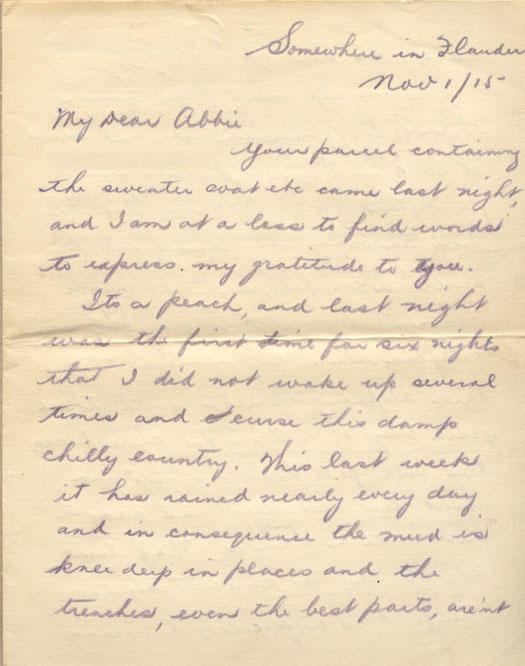 Somewhere in Flanders
Nov 1/15
My Dear Abbie
Your parcel containing
the sweater coat etc came last night,
and I am at a loss to find words
to express my gratitude to you.
Its a peach, and last night
was the first time for six nights
that I did not wake up several
times and curse this damp
chilly country. This last week
it has rained nearly every day
and in consequence the mud is
knee deep in places and the
trenches, even the best parts, are'nt